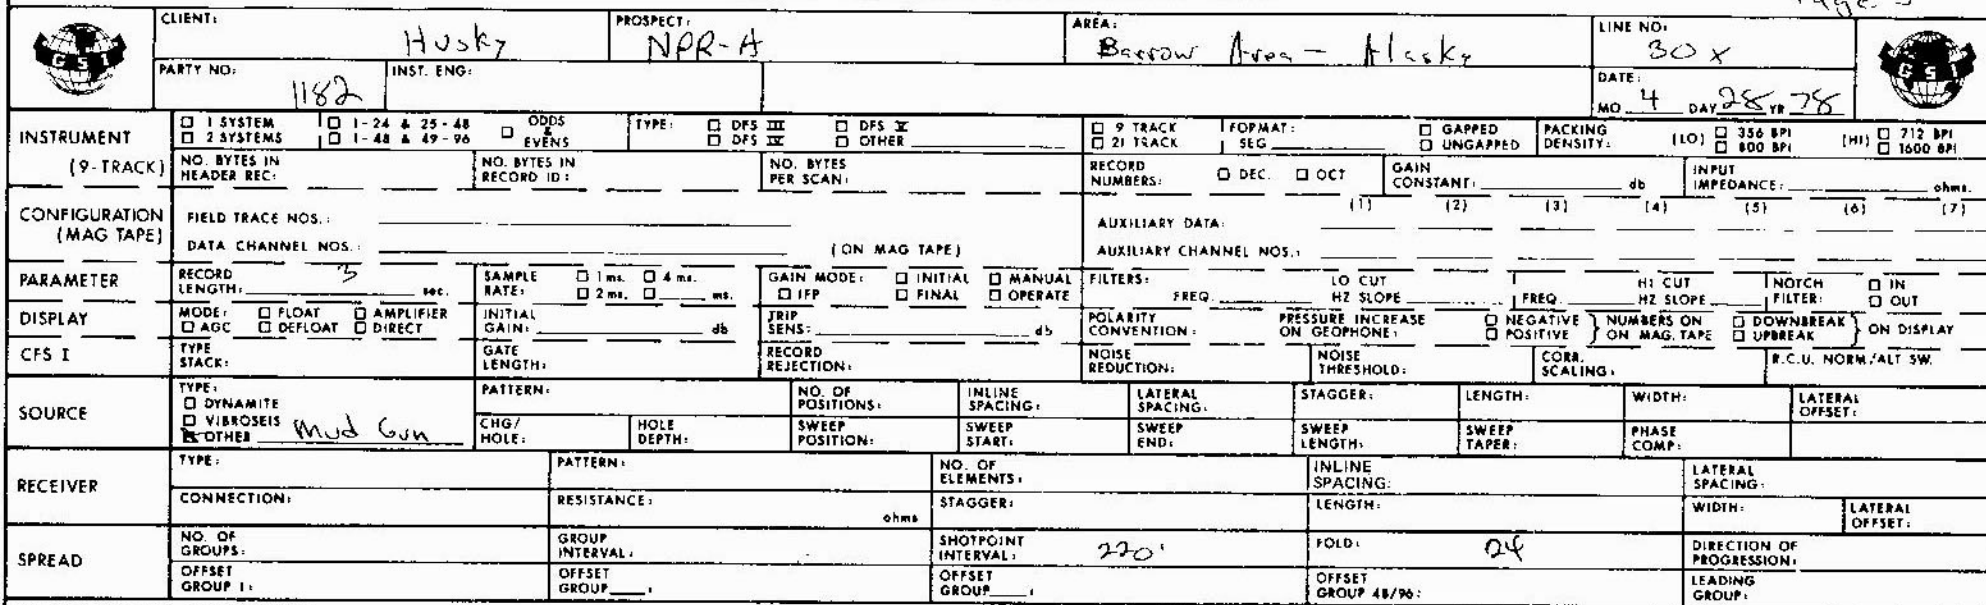 Page
CLIENT: Husky PROSPECT: NPR-A AREA: Barrow Area - Alaska LINE NO: 30 x
GSI
PARTY NO: 1182 INST. ENG: DATE: MO. 4 DAY 28 YR 78
GSI
INSTRUMENT (9-TRACK)
☐ 1 SYSTEM ☐ 1-24 & 25-48 ☐ ODDS & EVENS TYPE: ☐ DFS III ☐ DFS V ☐ 9 TRACK FORMAT: ☐ GAPPED PACKING DENSITY: (LO) ☐ 356 BPI (HI) ☐ 712 BPI
☐ 2 SYSTEMS ☐ 1-48 & 49-96 ☐ DFS IV ☐ OTHER ☐ 21 TRACK SEG ☐ UNGAPPED ☐ 800 BPI ☐ 1600 BPI
NO. BYTES IN HEADER REC: NO. BYTES IN RECORD ID: NO. BYTES PER SCAN: RECORD NUMBERS: ☐ DEC. ☐ OCT GAIN CONSTANT: db INPUT IMPEDANCE: ohms.
CONFIGURATION (MAG TAPE)
FIELD TRACE NOS.: AUXILIARY DATA: (1) (2) (3) (4) (5) (6) (7)
DATA CHANNEL NOS.: (ON MAG TAPE) AUXILIARY CHANNEL NOS.:
PARAMETER
RECORD LENGTH: 3 sec. SAMPLE RATE: ☐ 1 ms. ☐ 4 ms. ☐ 2 ms. ☐ ms. GAIN MODE: ☐ INITIAL ☐ MANUAL ☐ IFP ☐ FINAL ☐ OPERATE FILTERS: LO CUT FREQ. HZ SLOPE HI CUT FREQ. HZ SLOPE NOTCH FILTER: ☐ IN ☐ OUT
DISPLAY
MODE: ☐ FLOAT ☐ AMPLIFIER ☐ AGC ☐ DEFLOAT ☐ DIRECT INITIAL GAIN: db TRIP SENS: db POLARITY CONVENTION: PRESSURE INCREASE ON GEOPHONE: ☐ NEGATIVE ☐ POSITIVE } NUMBERS ON MAG. TAPE ☐ DOWNBREAK ☐ UPBREAK } ON DISPLAY
CFS I
TYPE STACK: GATE LENGTH: RECORD REJECTION: NOISE REDUCTION: NOISE THRESHOLD: CORR. SCALING: R.C.U. NORM/ALT SW.
SOURCE
TYPE: ☐ DYNAMITE ☐ VIBROSEIS ☒ OTHER Mud Gun
PATTERN: NO. OF POSITIONS: INLINE SPACING: LATERAL SPACING: STAGGER: LENGTH: WIDTH: LATERAL OFFSET:
CHG/HOLE: HOLE DEPTH: SWEEP POSITION: SWEEP START: SWEEP END: SWEEP LENGTH: SWEEP TAPER: PHASE COMP:
RECEIVER
TYPE: PATTERN: NO. OF ELEMENTS: INLINE SPACING: LATERAL SPACING:
CONNECTION: RESISTANCE: ohms STAGGER: LENGTH: WIDTH: LATERAL OFFSET:
SPREAD
NO. OF GROUPS: GROUP INTERVAL: SHOTPOINT INTERVAL: 220' FOLD: 24 DIRECTION OF PROGRESSION:
OFFSET GROUP 1: OFFSET GROUP : OFFSET GROUP : OFFSET GROUP 48/96: LEADING GROUP: